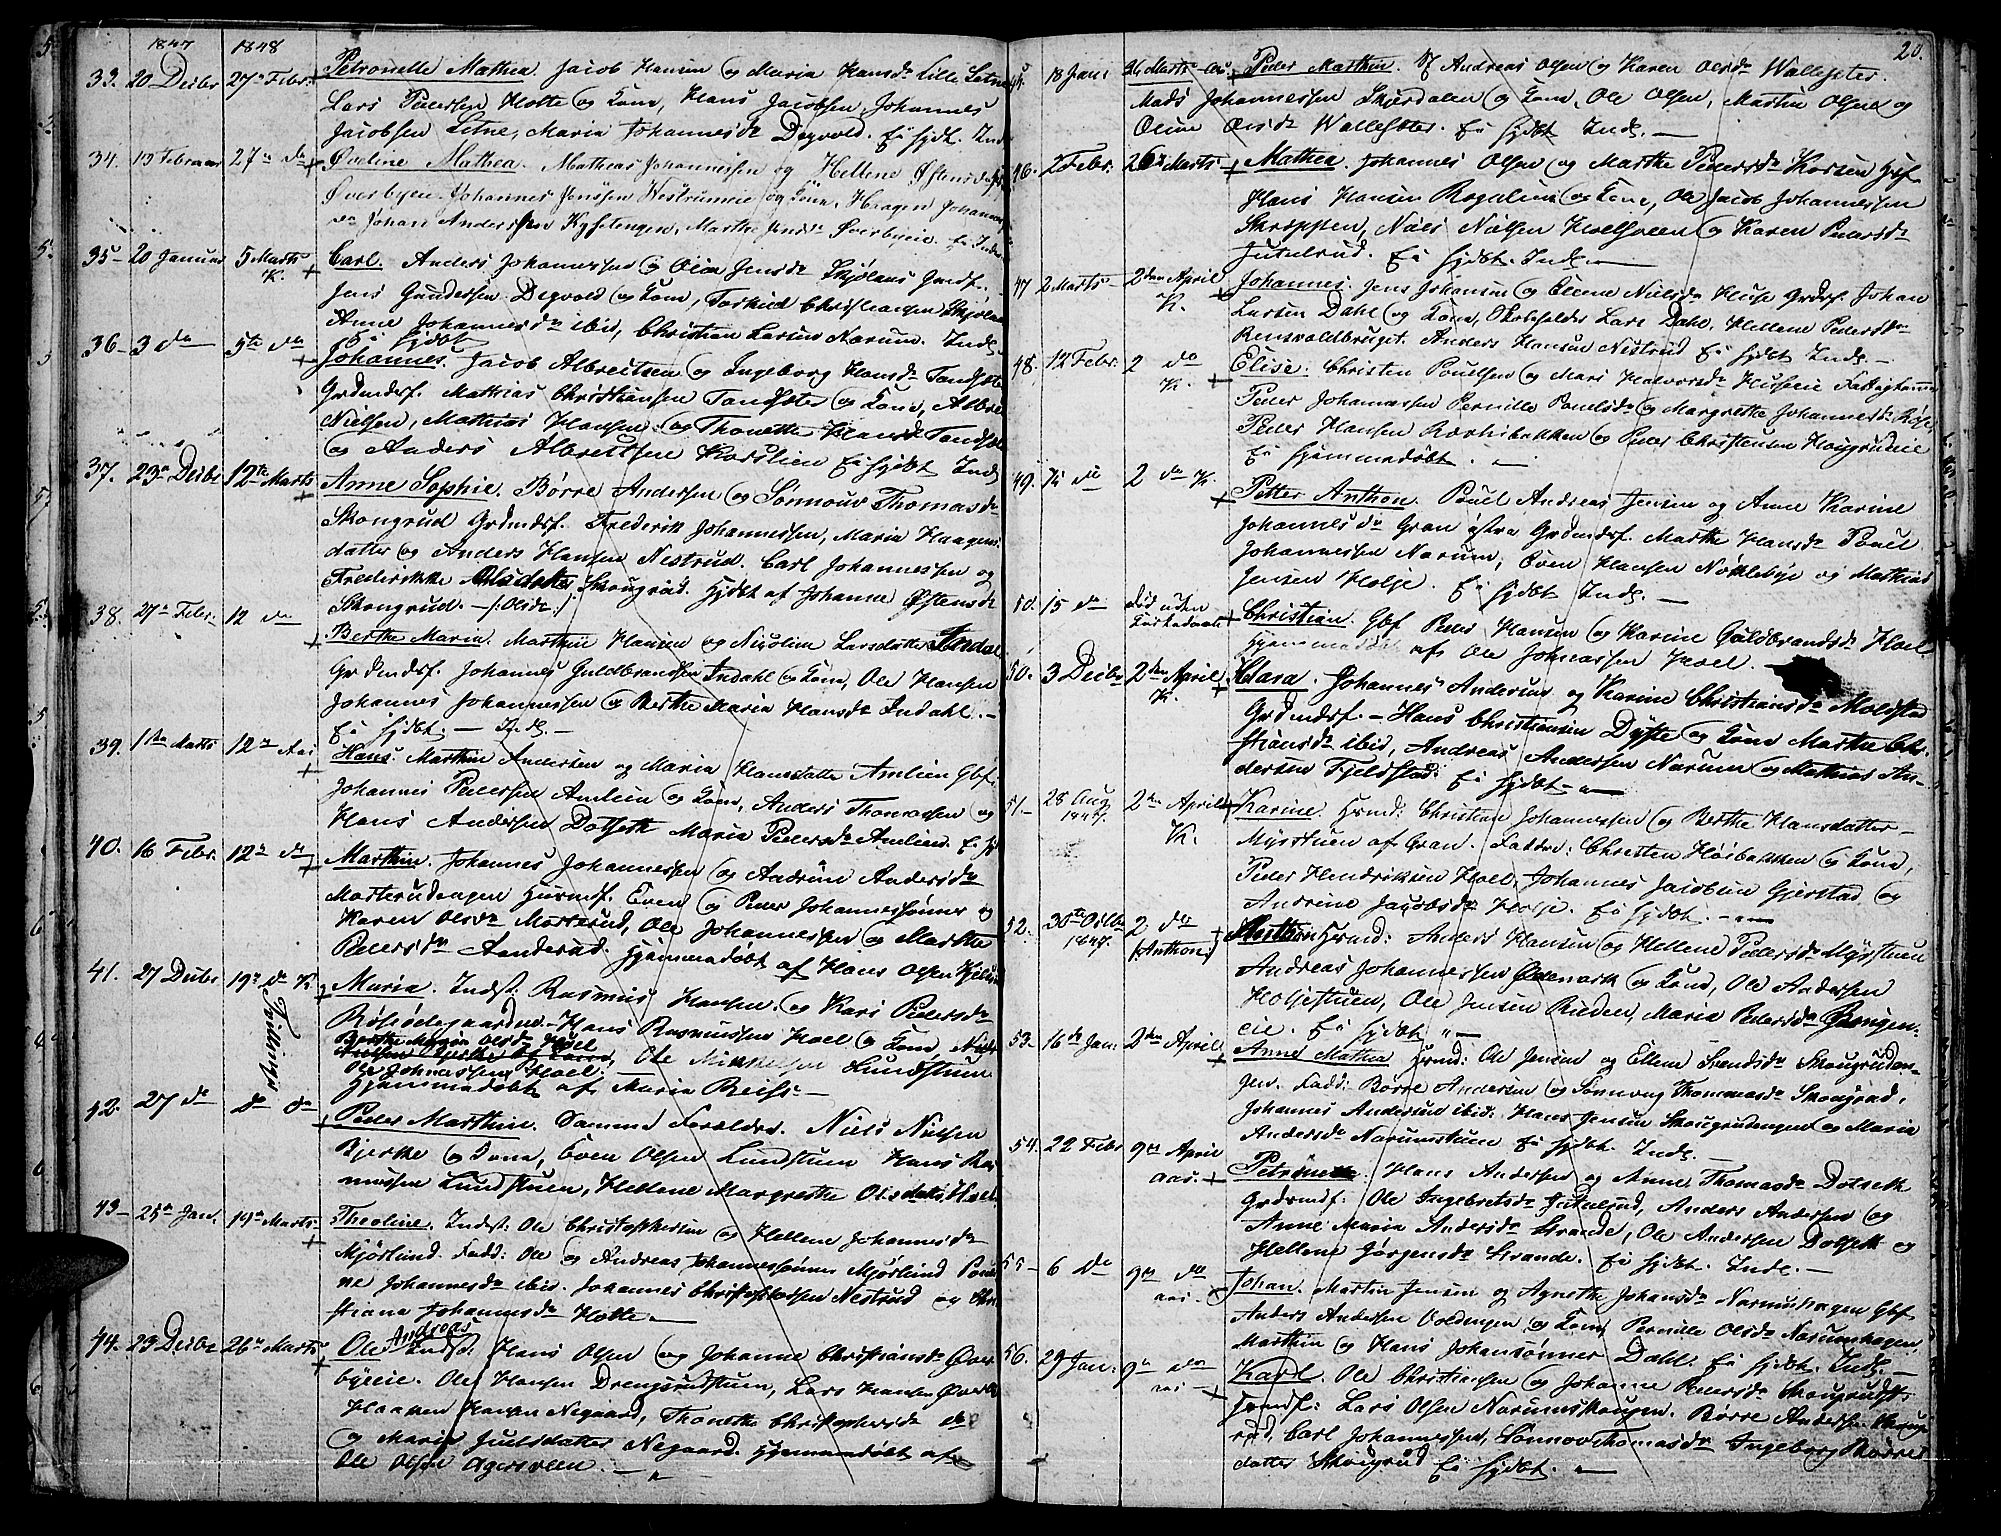 1847 1848
33. 20 Decbr 27de Febr. Petronelle Mathea. Jacob Hansen og Maria Hansdr Lille Setne
Lars Pedersen Hotte og Kone, Hans Jacobsen, Johannes
Jacobsen Setne, Maria Johannesdr Degvold. Ei hjdbt. Inds.
34. 13 Februar 27de do Oveline Mathea. Mathias Johannessen og Hellene Østensdr
Øverbyeie. Johannes Jenssen Westrumeie og Kone, Haagen
Johan Anderssen Kyselengen, Marthe Jensdr Øverbyeie. Ei Inds.
35 20 Januar 5 Marts K. Carl. Anders Johannessen og Oline Jensdr Skjølaas Indf.
Jens Gundersen Degvold og Kone, Torkild Christiansen Skjølaas
Anne Johannesdr ibid, Christian Larsen Narum. Inds.
Ei hjdbt
36 3 do 5te do Johannes. Jacob Albretsen og Ingeborg Hansdr Tandsæter
Grdmdsf. Mathias Christiansen Tandsæter og Kone, Albre
Nielsen, Mathias Hansen og Thonette Hansdr Tandsæt
og Anders Albretsen Korslien Ei hjdbt Inds
37. 23de Decbr 12te Marts Anne Sophie. Børre Andersen og Sønnouv Thomasdr
Skongrud Grdmdsf. Frederik Johannessen, Maria Haagens
datter og Anders Hansen Nestrud. Carl Johannessen og
Frederikke Olsdatter Skougrud. Hjdbt af Johanne Østensdr
Skongrud. — (: Olsdr :)
38. 27de Febr. 12 do Berthe Maria. Marthin Hansen og Nicoline Larsdatter Indal
Grdmdsf. Johannes Guldbrandsen Indahl og Kone, Ole Hansen
Johannes Johannessen og Berthe Maria Hansdr Indahl. —
Ei hjdbt. — Inds. —
39. 1ste Marts 12de Aas Hans. Marthin Andersen og Maria Hansdatter Amlien Gbf.
Johannes Pedersen Amlien og Kone, Anders Thomassen og
Hans Andersen Dotseth Maria Pedersdr Amlien. Ei hj
40. 16 Febr. 12te do Marthin. Johannes Johannessen og Andrine Andersdr
Morterudengen Huusmdf. Even og Peder Johannessønner og
Karen Olsdr Morterud, Ole Johannessen og Marthe
Pedersdr Anderud. Hjemmedøbt af Hans Olsen
41. 27 Decbr 19de do K Maria. Indst. Rasmus Hansen og Kari Pedersdr
Tvillinger
Røisødegaarden. Hans Rasmussen Hoel og Kone
Berthe Maria Olsdr Hoel
Ole Mikkelsen Lundstuen
Ole Johnassen Hoel.
Hjemmedøbt af Maria Reiss. —
42. 27 do do do Peder Marthin. Samme Forældre. Niels Nielsen
Bjerke og Kone, Even Olsen Lundstuen Hans Ras
mussen Lundstuen, Hellene Margrethe Olsdatter Hoel
43 25de Jan. 19de Marts Theoline. Indst: Ole Christophersen og Hellene Johannesdr
Mjørlund. Fadd: Ole og Andreas Johannessønner Mjørlund
ne Johannesdr ibid. Johannes Christophersen Nestrud og Chri
stiana Johannesdr Hotte. —
44. 23 Decbr 26de Marts Ole Andreas Indst. Hans Olsen og Johanne Christiansdr Øver
byeeie. Ole Hansen Drengsrudstuen, Lars Hansen
Haaken Hansen Negaard, Thonette Christophersdr do
og Maria Juulsdatter Negaard. Hjemmedøbt af
Ole Olsen Agersveen. —
20.
45. 18 Jan: 26 Marts Peder Marthin. Andreas Olsen og Karen Olsdr Wallesæter.
Mads Johannessen Skjerdalen og Kone, Ole Olsen, Martin Olsen og
Oline Olsdr Wallesæter. Ei hjdbt Inds. —
46. 2 Febr. 26de Marts Mathea. Johannes Olsen og Marthe Pedersdr Korsen
Hans Hansen Rognlien og Kone, Ole Jacob Johannessen
Skroppen, Niels Nielsen Hoelsveen og Karen Pedersdr
Jutulrud. Ei hjdbt. Inds. —
47 2 Marts 2den April K. Johannes. Jens Johansen og Ellene Nielsdr Kluse Grdsf. Johan
Larsen Dahl og Kone, Lars Dahl, Hellene Pedersdr
Rensvoldbruget. Anders Hansen Nestrud Ei hjdbt Inds. —
48. 12 Febr. 2 do K. Elise. Christen Poulsen og Mari Halvorsdr Husseie Fattiglemmer
Peder Johannessen Pernille Poulsdr og Margrethe Johannesdr
Peder Hansen og Peder Christensen Haugsrudeie
Ei hjemmedøbt. —
49. 14 de 2 do K. Petter Anthon. Pouel Andreas Jensen og Anne Karine
Johannesdr Gran østre Grdmdsf. Marthe Hansdr Pouel
Johannessen Narum, Even Hansen Nøklebye og Mathias
Jensen Holje. Ei hjdbt Inds. —
50. 15 do død uden Kirkedaab Christian. Gbf Peder Hansen og Karine Guldbrandsdr Hoel
Hjemmedøbt af Ole Johnassen Hoel. —
50. 3 Decbr 2den April K. Clara. Johannes Andersen og Karine Christiansdr Molstad
Grdmdsf. — Hans Christiansen Dyste og Kone Marthe Chri
stiansdr ibid, Andreas Andersen Narum og Mathias An-
dersen Fjeldstad. Ei hjdbt. —
51 28 Aug 1847. 2den April K. Karine. Hsmd: Christian Johannessen og Berthe Hansdatter
Myrstuen af Gran. Faddre: Christen Høibakken og Kone,
Peder Hendriksen Hoel, Johannes Jacobsen Gjerstad og
Andrine Jacobsdr Holje. Ei hjdbt. —
52. 30te Octbr 1847. 2 do (Anthon) Anthon Hsmd: Anders Hansen og Hellene Pedersdr Myrstuen
Andreas Johannessen Ødemark og Kone, Ole Andersen
Holjestuen, Ole Jensen Ruden, Maria Pedersdr Gjengen-
eie. Ei hjdbt —
53. 16de Jan: 2den April Anne Mathea Hsmd: Ole Jensen og Ellene Svendsdr Skougruden-
gen. Fadd: Børre Andersen og Sønnoug Thommasdr Skougrud,
Johannes Andersen ibid: Hans Jensen Skougrudengen og Maria
Andersdr Narumstuen Ei hjdbt. Inds. —
54. 22 Febr 9de April Aas. Petrine. Hans Andersen og Anne Thomasdr Dotseth
Grdmdf. Ole Ingebretsdr Jutulrud, Anders Andersen og
Anne Maria Andersdr Strande, Ole Andersen Dotseth og
Hellene Jørgensdr Strande. Ei hjdbt. Inds. —
55 6 do 9de do aas. Johan. Martin Jensen og Agnethe Johansdr Narumhagen Gbf
Anders Andersen Voldengen og Kone Pernille Olsdr Narumhagen,
Marthin og Hans Johansønner Dahl. Ei hjdbt. Inds. —
56. 29 Jan: 9de do Karl. Ole Christensen og Johanne Pedersdr Skougrud
Hsmdf: Lars Olsen Narumskougen. Børre Andersen Skoug
rud, Carl Johannessen, Sønnov Thomasdr Ingeborg Børres
datter Skougrud Ei hjdbt. —